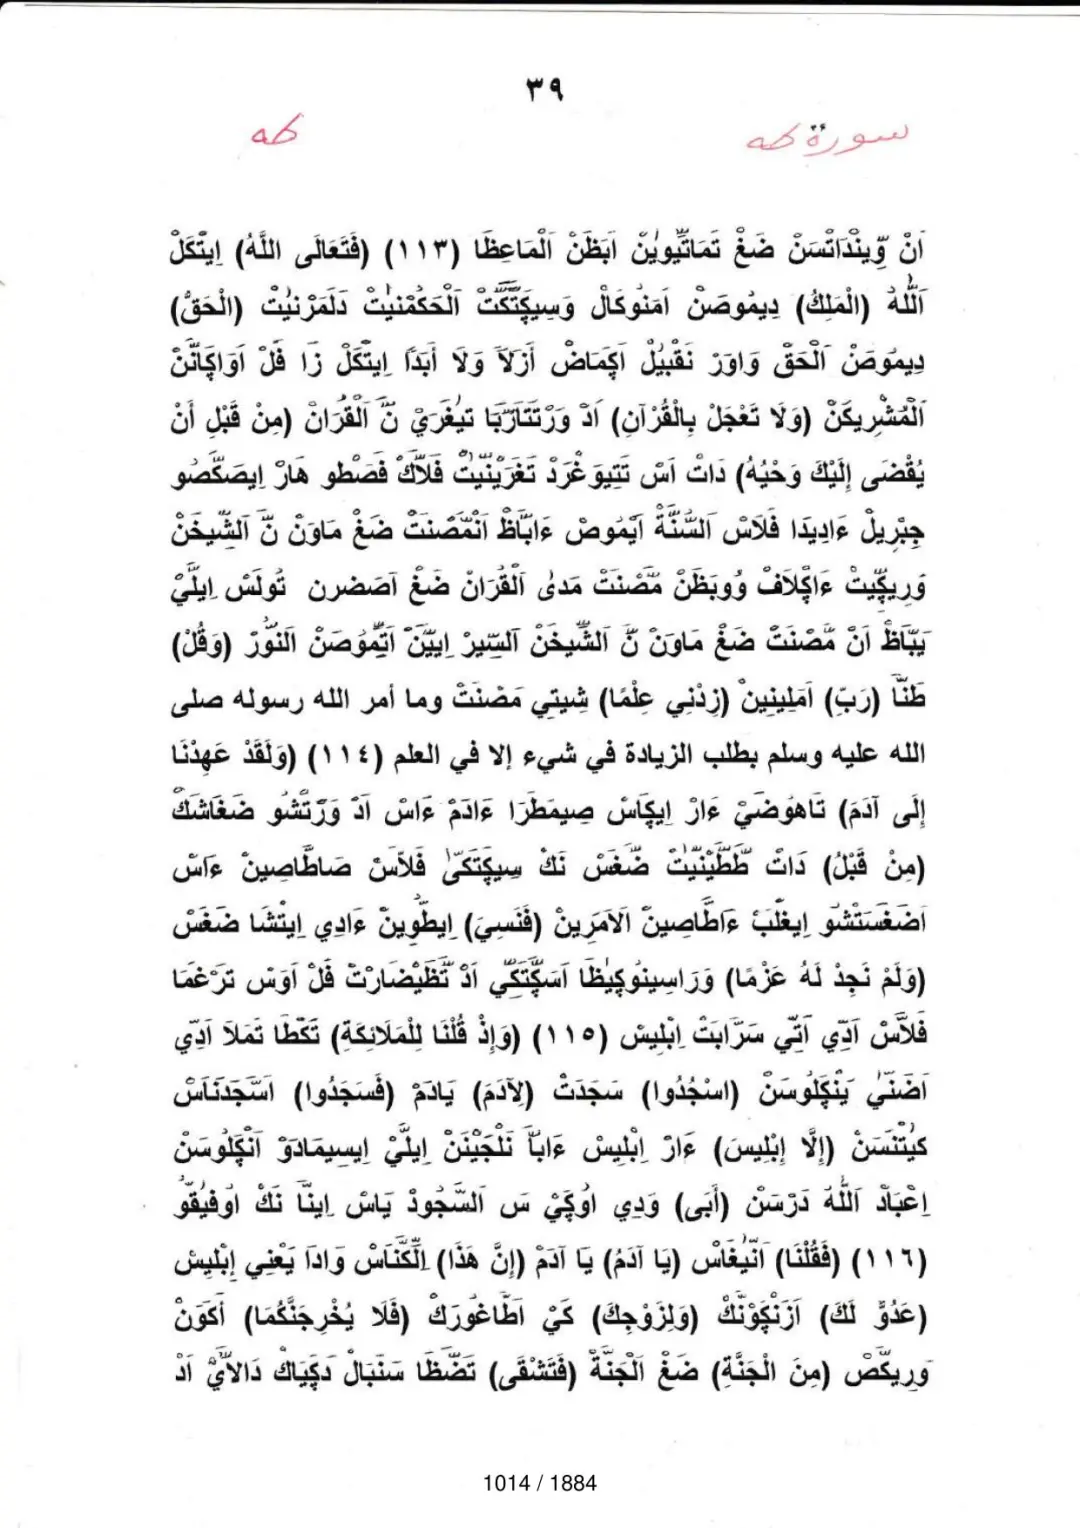 ٣٩
سورة طه
طه
اَنْ وِّينْدَاتْسَنْ ضَغْ تَمَاتِّيوِينْ اَبَظَنْ اَلْمَاعِظَا (١١٣) (فَتَعَالَى اللَّهُ) اِيتْكَلْ
اَللَّهُ (الْمَلِكُ) دِيمُوصَنْ اَمَنُوكَالْ وَسِيكْتَكَتْ اَلْحَكْمَنِيتْ دَلَمَرْنِيتْ (الْحَقُّ)
دِيمُوصَنْ اَلْحَقْ وَاوَرْ نَقْبِيلْ اَكِمَاضْ أَزَلاَ وَلَا أَبَدًا اِيتْكَلْ زَا فَلْ اَوَاكَانَّنْ
اَلْمُشْرِيكَنْ (وَلَا تَعْجَلْ بِالْقُرْآنِ) اَدْ وَرْتَتَارَبَا تِيغَرِيْ نَّ اَلْقُرَانْ (مِنْ قَبْلِ أَنْ
يُقْضَى إِلَيْكَ وَحْيُهُ) دَاتْ اَسْ تَتِيوَغْرَدْ تَغَرَيْنِيتْ فَلاَّكْ فَصْطُو هَارْ اِيصَكْصُو
جِبْرِيلْ ءَادِيدَا فَلاَسْ اَلسُّنَّةْ اَيْمُوصْ ءَابَّاظْ اَنْمَّصْنَتْ ضَغْ مَاوَنْ نَّ اَلشِّيخَنْ
وَرِيكِّيتْ ءَاكْلاَفْ وُوبَظَنْ مَّصْنَتْ مَدَىٰ اَلْقُرَانْ ضَغْ اَصَضرن تُولَسْ اِيلَّيْ
يَبَّاظْ اَنْ مَّصْنَتْ ضَغْ مَاوَنْ نَّ اَلشِّيخَنْ اَلسِّيرْ اِيِيَنْ اَتِّمُوصَنْ اَلنُّورْ (وَقُلْ)
طَنَّا (رَبِّ) اَمَلِينِينْ (زِدْنِي عِلْمًا) شِيتِي مَصْنَتْ وما أمر الله رسوله صلى
الله عليه وسلم بطلب الزيادة في شيء إلا في العلم (١١٤) (وَلَقَدْ عَهِدْنَا
إِلَى آدَمَ) تَاهُوضَيْ ءَارْ اِيكَاسْ صِيمَطَرَا ءَادَمْ ءَاسْ اَدْ وَرْتَشُو ضَغَاشَكْ
(مِنْ قَبْلُ) دَاتْ طَطَّيْنِيتْ ضَغَسْ نَكْ سِيكْتَكَىْ فَلاَسْ صَاطَاصِينْ ءَاسْ
اَضَغَسَتْشُو اِيغْلَبْ ءَاطَاصِينْ اَلاَمَرِينْ (فَنَسِيَ) اِيطْوِينْ ءَادِي اِيتْشَا ضَغَسْ
(وَلَمْ نَجِدْ لَهُ عَزْمًا) وَرَاسِينُوكِيظَا اَسَكْتَكِّي اَدْ تَظِيضَارَتْ فَلْ اَوَسْ تَرْغَمَا
فَلاَّسْ اَدِي اَتِّي سَرَّابَتْ اِبْلِيسْ (١١٥) (وَإِذْ قُلْنَا لِلْمَلائِكَةِ) تَكَطَا تَمَلاَ اَدِي
اَضَنَّىٰ يَنْكِلُوسَنْ (اسْجُدُوا) سَجَدَتْ (لِآدَمَ) يَادَمْ (فَسَجَدُوا) اَسْجَدَنَاسْ
كِيتْنَسَنْ (إِلَّا إِبْلِيسَ) ءَارْ اِبْلِيسْ ءَابَّا نَلْجَيْنَنْ اِيلَّيْ اِيسِيمَادَوْ اَنْكَلُوسَنْ
اِعْبَادْ اَللَّهُ دَرْسَنْ (أَبَى) وَدِي اوُكَيْ سَ اَلسُّجُودْ يَاسْ اِينَا نَكْ اوُفِيقُو
(١١٦) (فَقُلْنَا) اَنَّيْغَاسْ (يَا آدَمُ) يَا آدَمْ (إِنَّ هَذَا) اِلْكَنَاسْ وَادَا يَعْنِي إِبْلِيسْ
(عَدُوٌّ لَكَ) اَزَنْكَوْنَّكْ (وَلِزَوْجِكَ) كَيْ اَطَاغُورَكْ (فَلَا يُخْرِجَنَّكُمَا) أَكَوَنْ
وَرِيكَّصْ (مِنَ الْجَنَّةِ) ضَغْ اَلْجَنَّةْ (فَتَشْقَى) تَضَظَا سَنْبَالْ دَكِيَاكْ دَالاَيْ اَدْ
1014 / 1884